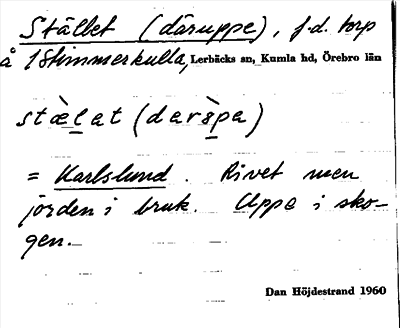 Stället (däruppe), f.d. torp
å 1 Stimmerkulla, Lerbäcks sn, Kumla hd, Örebro län
stæ̀lat (dars̀pa)
= Karlslund. Rivet men
jorden i bruk. Uppe i sko-
gen.
Dan Höjdestrand 1960